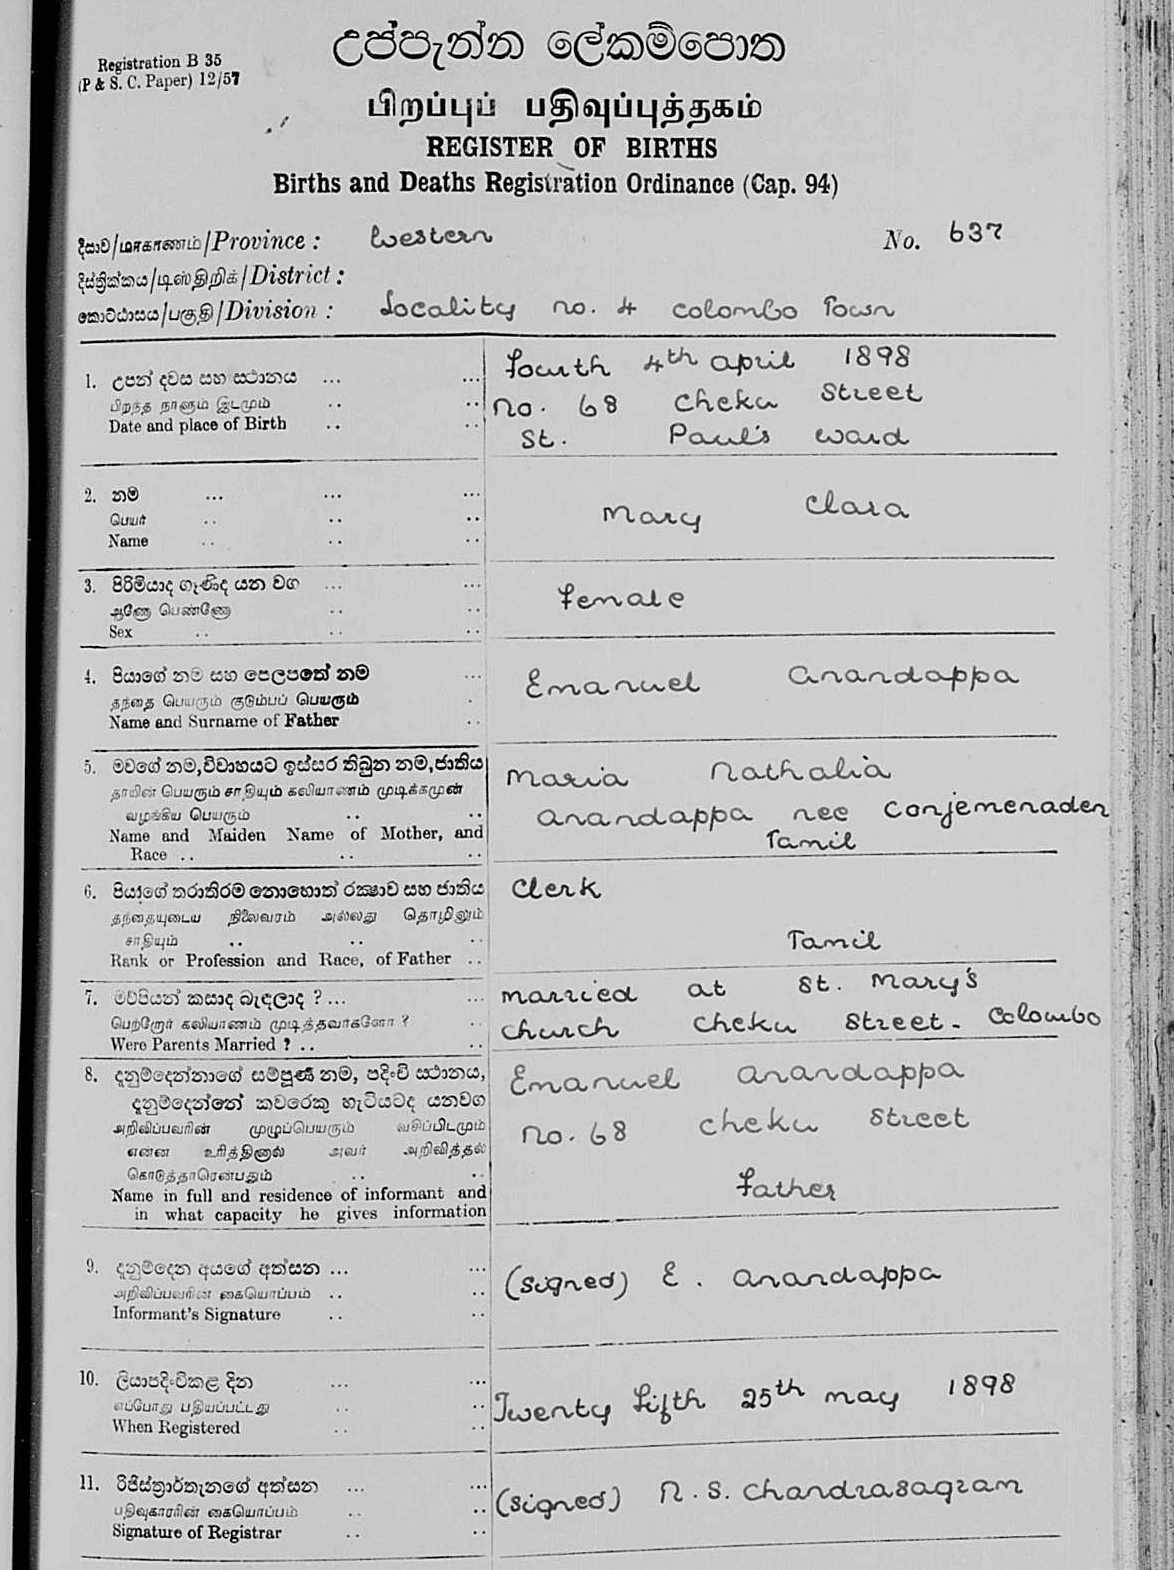 Registration B 35
(P & S. C. Paper) 12/57
උප්පැන්න ලේකම්පොත
பிறப்புப் பதிவுப்புத்தகம்
REGISTER OF BIRTHS
Births and Deaths Registration Ordinance (Cap. 94)
දිසාව/மாகாணம்/Province : Western No. 637
දිස්ත්‍රික්කය/டிஸ்திறிக்/District :
කොට්ඨාසය/பகுதி/Division : Locality no. 4 Colombo Town
1. උපන් දවස සහ ස්ථානය ... ...
பிறந்த நாளும் இடமும் .. ..
Date and place of Birth .. ..
Fourth 4th april 1898
No. 68 Cheku Street
St. Paul's Ward
2. නම ... ... ...
பெயர் .. .. ..
Name .. .. ..
Mary Clara
3. පිරිමියාද ගැණිද යන වග ... ...
ஆணோ பெண்ணோ .. ..
Sex .. .. ..
Female
4. පියාගේ නම සහ පෙලපතේ නම ...
தந்தை பெயரும் குடும்பப் பெயரும் .
Name and Surname of Father ..
Emanuel Anandappa
5. මවගේ නම, විවාහයට ඉස්සර තිබුන නම, ජාතිය
தாயின் பெயரும் சாதியும் கலியாணம் முடிக்கமுன்
வழங்கிய பெயரும் .. ..
Name and Maiden Name of Mother, and
Race .. .. ..
Maria Nathalia
Anandappa nee Conjemenaden
Tamil
6. පියාගේ තරාතිරම නොහොත් රක්ෂාව සහ ජාතිය
தந்தையுடைய நிலைவரம் அல்லது தொழிலும்
சாதியும் .. .. ..
Rank or Profession and Race, of Father ..
Clerk
Tamil
7. මව්පියන් කසාද බැඳලාද ? ... ...
பெற்றோர் கலியாணம் முடித்தவர்களோ ? ..
Were Parents Married ? .. ..
married at St. Mary's
church Cheku Street - Colombo
8. දැනුම්දෙන්නාගේ සම්පූර්ණ නම, පදිංචි ස්ථානය,
දැනුම්දෙන්නේ කවරෙකු හැටියටද යනවග
அறிவிப்பவரின் முழுப்பெயரும் வசிப்பிடமும்
என்ன உரித்தினால் அவர் அறிவித்தல்
கொடுத்தாரென்பதும் .. ..
Name in full and residence of informant and
in what capacity he gives information
Emanuel Anandappa
No. 68 Cheku Street
Father
9. දැනුම්දෙන අයගේ අත්සන ... ...
அறிவிப்பவரின் கையொப்பம் .. ..
Informant's Signature .. ..
(signed) E. Anandappa
10. ලියාපදිංචිකළ දින ... ...
எப்போது பதியப்பட்டது .. ..
When Registered .. ..
Twenty fifth 25th may 1898
11. රිජිස්ත්‍රාර්තැනගේ අත්සන ... ...
பதிவுகாரரின் கையொப்பம் .. ..
Signature of Registrar .. ..
(signed) R. S. Chandrasagran